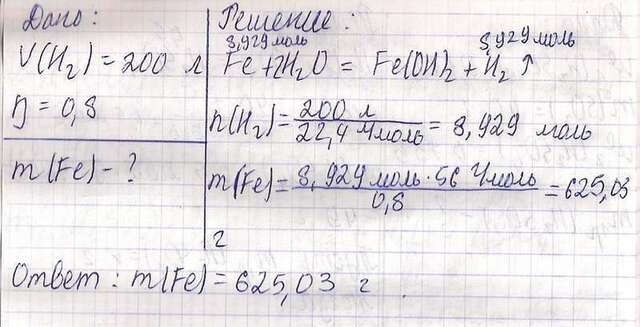 Дано:
V(H₂) = 200 л
η = 0,8
m(Fe) - ?
Решение:
8,929 моль 8,929 моль
Fe + 2H₂O = Fe(OH)₂ + H₂↑
n(H₂) = 200 л / 22,4 л/моль = 8,929 моль
m(Fe) = 8,929 моль · 56 г/моль / 0,8 = 625,03
г
Ответ: m(Fe) = 625,03 г